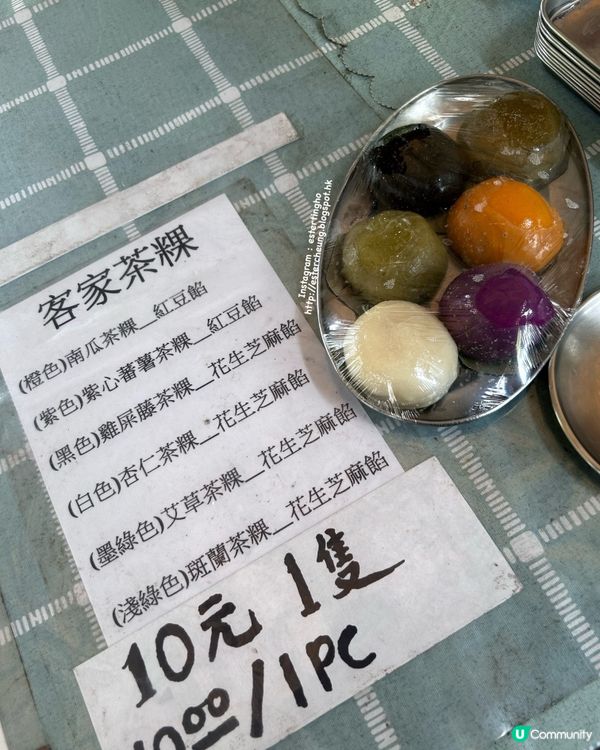 客家茶粿
(橙色)南瓜茶粿__紅豆餡
(紫色)紫心蕃薯茶粿__紅豆餡
(黑色)雞屎藤茶粿__花生芝麻餡
(白色)杏仁茶粿__花生芝麻餡
(墨綠色)艾草茶粿__花生芝麻餡
(淺綠色)斑蘭茶粿__花生芝麻餡
10元 1隻
10.00/1PC
Instagram : estertingho
http://estercheung.blogspot.hk
U Community